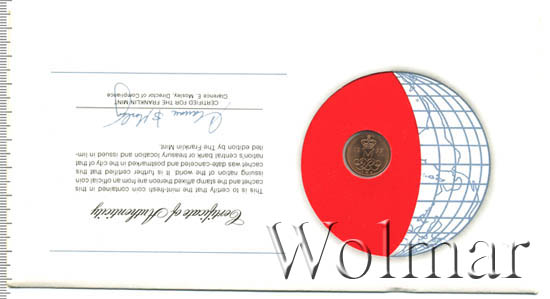 Certificate of Authenticity
This is to certify that the mint-fresh coin contained in this
cachet and the stamp affixed hereon are an official coin of
issuing nation of the world. It is further certified that this
cachet was date-canceled and postmarked in the city of that
nation's central bank or treasury location and issued in lim-
ited edition by The Franklin Mint.
CERTIFIED FOR THE FRANKLIN MINT
Clarence E. Mosley, Director of Compliance
Wolmar